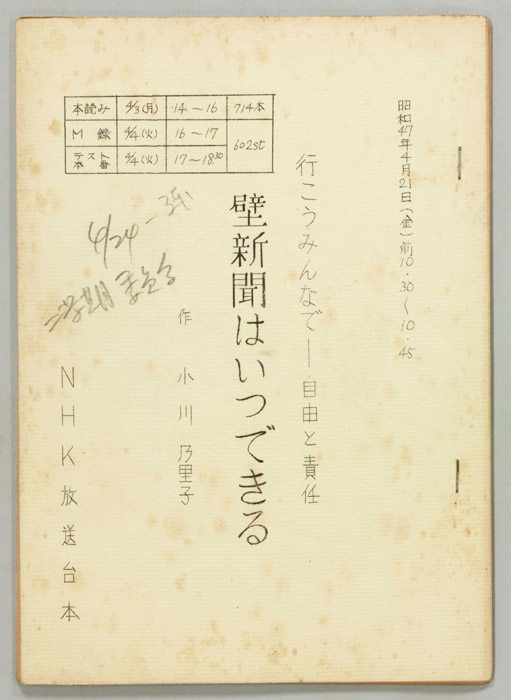 昭和47年4月21日(金)前10・30〜10・45
行こうみんなで—自由と責任
壁新聞はいつできる
作 小川乃里子
NHK放送台本
本読み 4/3(月) 14〜16 714本
M録 4/4(火) 16〜17 602st
テスト本番 4/4(火) 17〜18.30
4/24